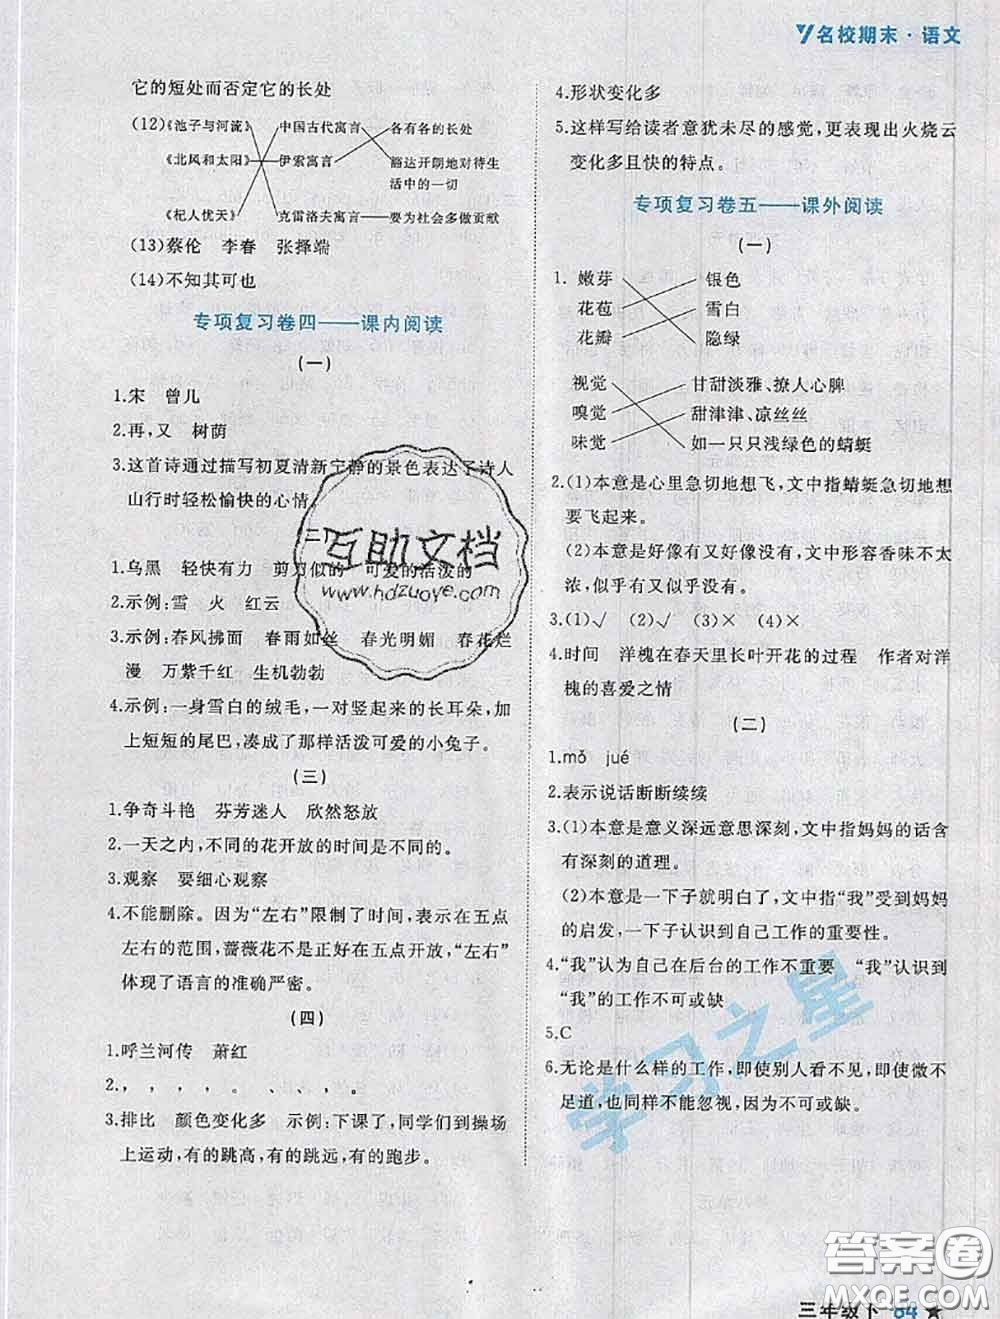 名校期末·语文
它的短处而否定它的长处
(12)《池子与河流》 中国古代寓言 各有各的长处
《北风和太阳》 伊索寓言 豁达开朗地对待生活中的一切
《杞人忧天》 克雷洛夫寓言 要为社会多做贡献
(13)蔡伦 李春 张择端
(14)不知其可也
专项复习卷四——课内阅读
(一)
1.宋 曾几
2.再,又 树荫
3.这首诗通过描写初夏清新宁静的景色表达了诗人
山行时轻松愉快的心情。
(二)
1.乌黑 轻快有力 剪刀似的 可爱的活泼的
2.示例:雪 火 红云
3.示例:春风拂面 春雨如丝 春光明媚 春花烂
漫 万紫千红 生机勃勃
4.示例:一身雪白的绒毛,一对竖起来的长耳朵,加
上短短的尾巴,凑成了那样活泼可爱的小兔子。
(三)
1.争奇斗艳 芬芳迷人 欣然怒放
2.一天之内,不同的花开放的时间是不同的。
3.观察 要细心观察
4.不能删除。因为“左右”限制了时间,表示在五点
左右的范围,蔷薇花不是正好在五点开放,“左右”
体现了语言的准确严密。
(四)
1.呼兰河传 萧红
2.， ， ， ， 。 、 ， 。
3.排比 颜色变化多 示例:下课了,同学们到操场
上运动,有的跳高,有的跳远,有的跑步。
4.形状变化多
5.这样写给读者意犹未尽的感觉,更表现出火烧云
变化多且快的特点。
专项复习卷五——课外阅读
(一)
1. 嫩芽 银色
花苞 雪白
花瓣 隐绿
视觉 甘甜淡雅、撩人心脾
嗅觉 甜津津、凉丝丝
味觉 如一只只浅绿色的蜻蜓
2.(1)本意是心里急切地想飞,文中指蜻蜓急切地想
要飞起来。
(2)本意是好像有又好像没有,文中形容香味不太
浓,似乎有又似乎没有。
3.(1)√ (2)√ (3)× (4)×
4.时间 洋槐在春天里长叶开花的过程 作者对洋
槐的喜爱之情
(二)
1.mǒ jué
2.表示说话断断续续
3.(1)本意是意义深远意思深刻,文中指妈妈的话含
有深刻的道理。
(2)本意是一下子就明白了,文中指“我”受到妈妈
的启发,一下子认识到自己工作的重要性。
4.“我”认为自己在后台的工作不重要 “我”认识到
“我”的工作不可或缺
5.C
6.无论是什么样的工作,即使别人看不见,即使微不
足道,也同样不能忽视,因为不可或缺。
互助文档
www.hdzuoye.com
学习之星
答案圈
MXQE.COM
三年级下 64